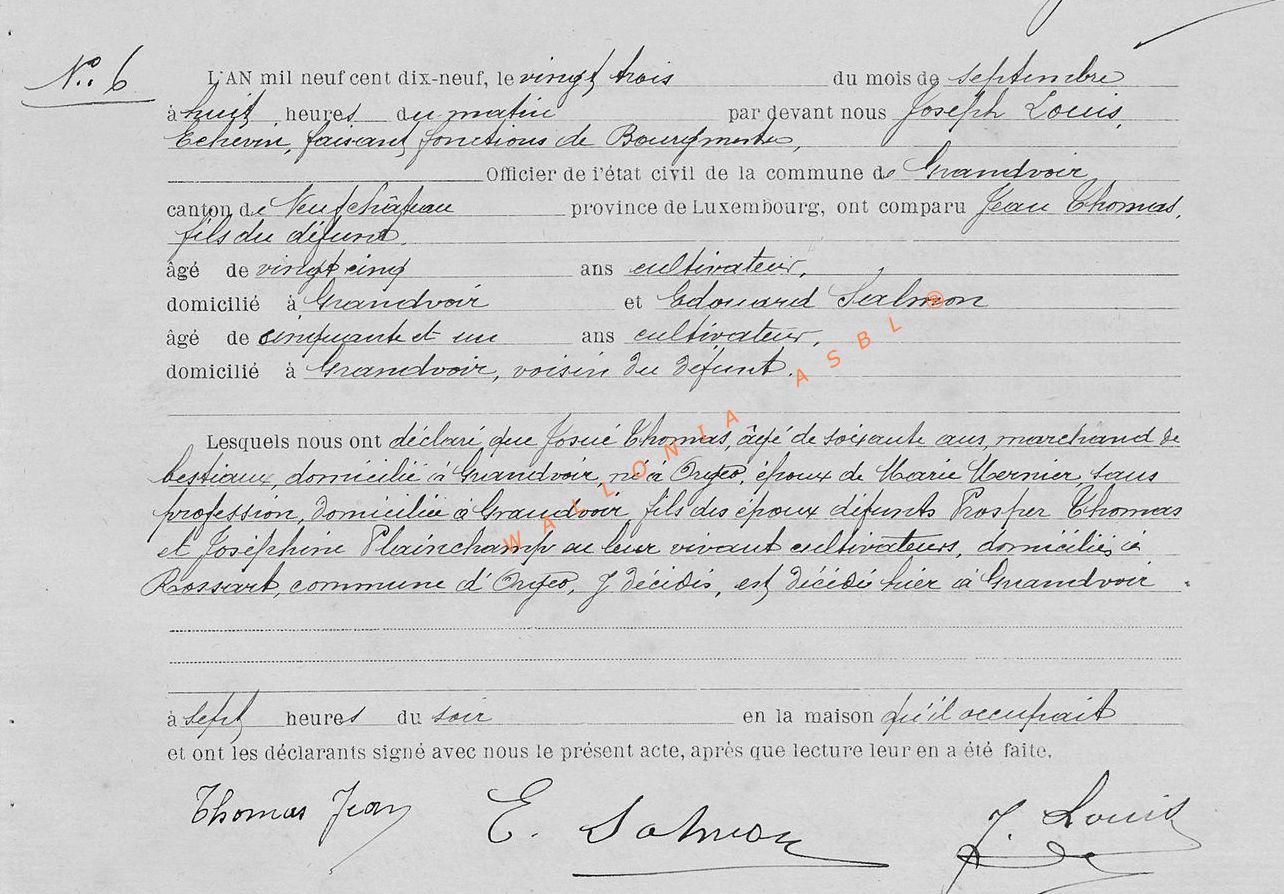 N.. 6
L'AN mil neuf cent dix-neuf, le vingt trois du mois de septembre
à huit heures du matin par devant nous Joseph Louis,
Echevin, faisant fonctions de Bourgmestre,
Officier de l'état civil de la commune de Grandvoir
canton de Neufchâteau province de Luxembourg, ont comparu Jean Thomas,
fils du défunt,
âgé de vingt cinq ans cultivateur,
domicilié à Grandvoir et Edouard Salmon
âgé de cinquante et un ans cultivateur,
domicilié à Grandvoir, voisin du défunt.
Lesquels nous ont déclaré que Josué Thomas, âgé de soixante ans, marchand de
bestiaux, domicilié à Grandvoir, né à Orgeo, époux de Marie Mernier, sans
profession, domiciliée à Grandvoir fils des époux défunts Prosper Thomas
et Joséphine Plainchamp en leur vivant cultivateurs, domiciliés à
Rossart, commune d'Orgeo, y décédés, est décédé hier à Grandvoir
à sept heures du soir en la maison qu'il occupait
et ont les déclarants signé avec nous le présent acte, après que lecture leur en a été faite.
Thomas Jean E. Salmon J. Louis
WALLONIA ASBL ©